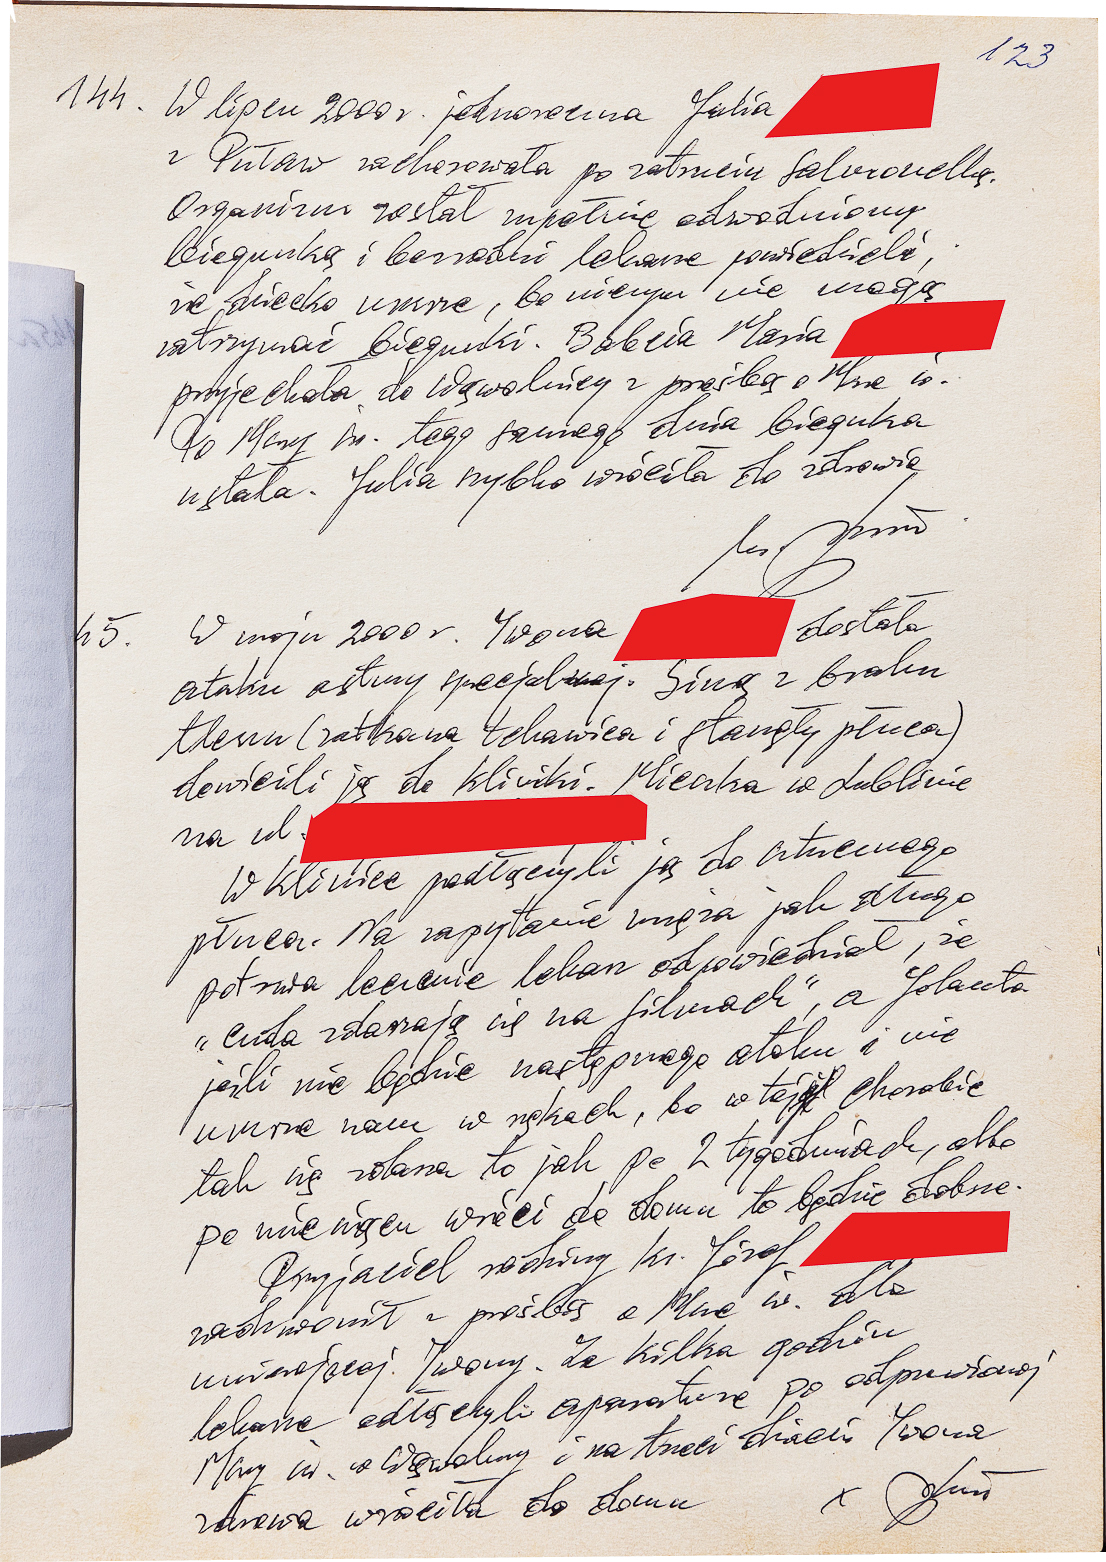 123
144. W lipcu 2000 r. jednoroczna Julia
z Puław zachorowała po zatruciu salmonellą.
Organizm został zupełnie odwodniony
biegunką i bezradni lekarze powiedzieli,
że dziecko umrze, bo niczym nie mogą
zatrzymać biegunki. Babcia Maria
przyjechała do Wąwolnicy z prośbą o Mszę św.
Po Mszy św. tego samego dnia biegunka
ustała. Julia szybko wróciła do zdrowia
ks.
45. W maju 2000 r. Iwona dostała
ataku astmy specjalnej. Siną z braku
tlenu (zatkana tchawica i stanęły płuca)
dowieźli ją do kliniki. Mieszka w Lublinie
na ul.
W klinice podłączyli ją do sztucznego
płuca. Na zapytanie męża jak długo
potrwa leczenie lekarz odpowiedział, że
"cuda zdarzają się na filmach", a Jolanta
jeśli nie będzie następnego ataku i nie
umrze nam w rękach, bo w tej chorobie
tak się zdarza to jak po 2 tygodniach, albo
po miesiącu wróci do domu to będzie dobrze.
Przyjaciel rodziny ks. Józef
zadzwonił z prośbą o Mszę św. dla
umierającej Iwony. Za kilka godzin
lekarze odłączyli aparaturę po odprawionej
Mszy św. w Wąwolnicy i na trzeci dzień Iwona
zdrowa wróciła do domu x